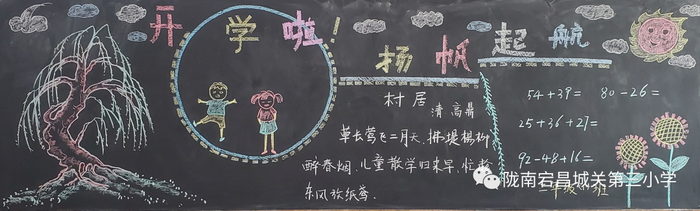 开学啦！扬帆起航
村居
清 高鼎
草长莺飞二月天，拂堤杨柳
醉春烟。儿童散学归来早，忙趁
东风放纸鸢。
54+39= 80-26=
25+36+27=
92-48+16=
陇南宕昌城关第二小学